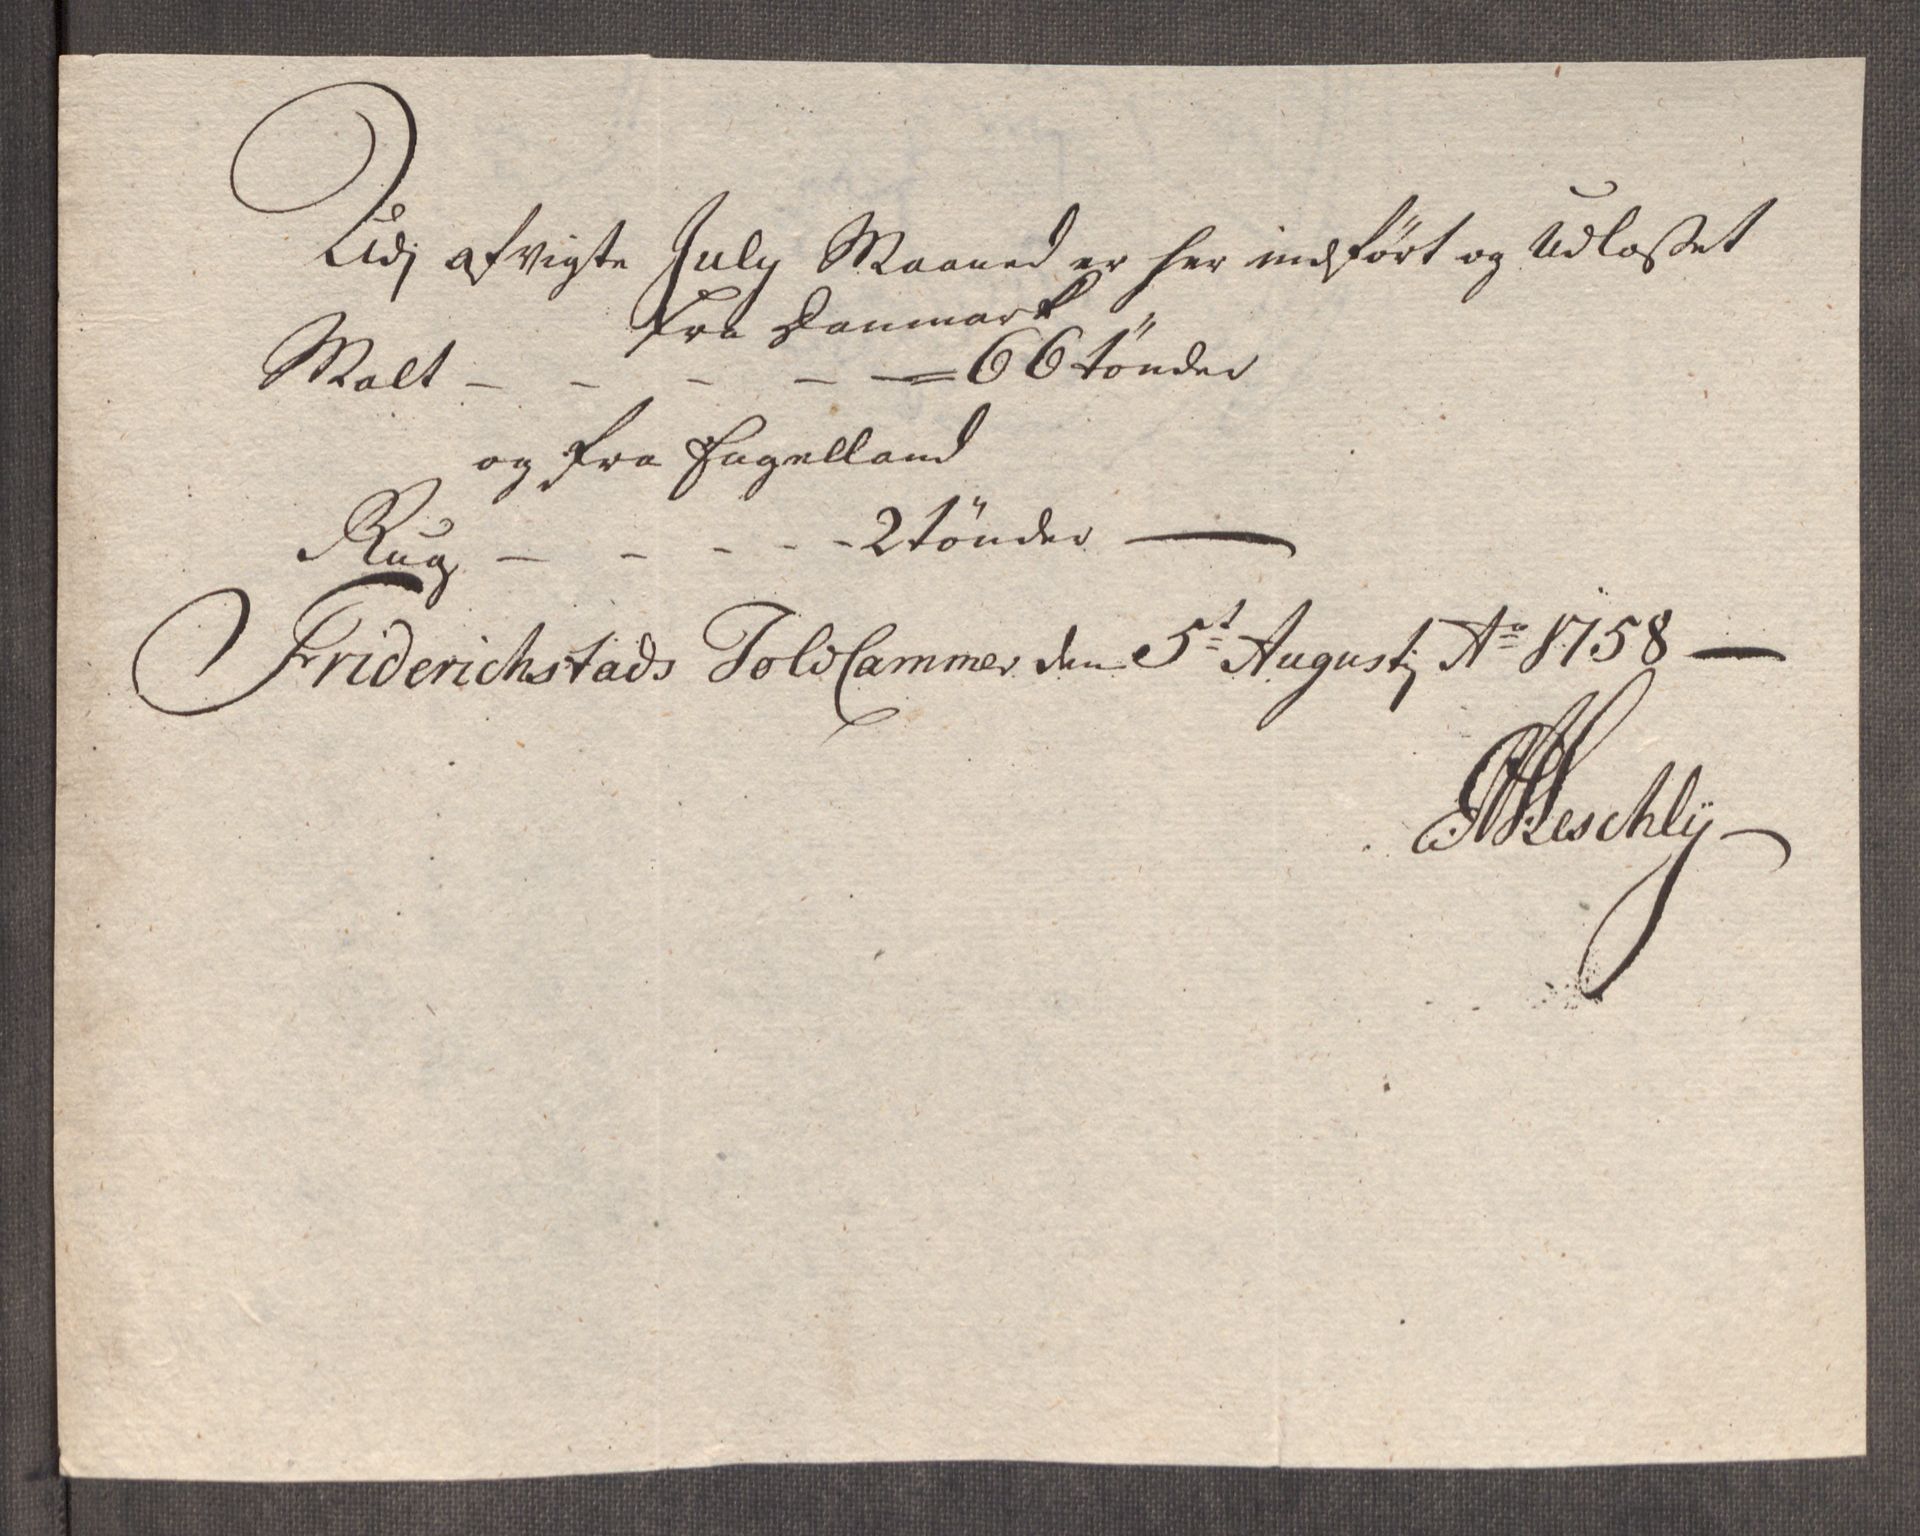 Udj afvigte July Maaned er her indført og Udlosset
fra Danmark
Malt - - - - = 66 tönder
og fra Engelland
Rug - - - - - 2 tönder —
Friderichstads Told Cammer den 5t Augustj Ao 1758 —